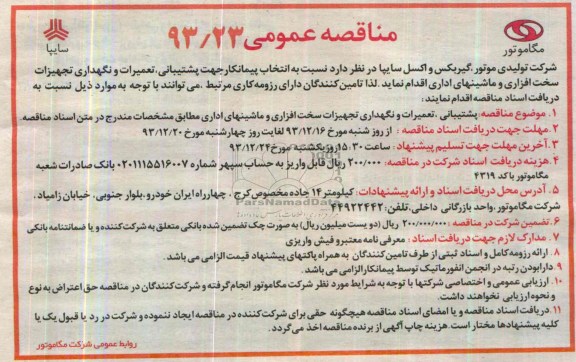 مگاموتور
سایپا
مناقصه عمومی ۹۳/۲۳
شرکت تولیدی موتور،گیربکس و اکسل سایپا در نظر دارد نسبت به انتخاب پیمانکار جهت پشتیبانی،تعمیرات و نگهداری تجهیزات
سخت افزاری و ماشینهای اداری اقدام نماید .لذا تامین کنندگان دارای رزومه کاری مرتبط ،می توانند با توجه به موارد ذیل نسبت به
دریافت اسناد مناقصه اقدام نمایند:
۱. موضوع مناقصه: پشتیبانی ،تعمیرات و نگهداری تجهیزات سخت افزاری و ماشینهای اداری مطابق مشخصات مندرج در متن اسناد مناقصه.
۲. مهلت جهت دریافت اسناد مناقصه : از روز شنبه مورخ ۹۳/۱۲/۱۶ لغایت روز چهارشنبه مورخ ۹۳/۱۲/۲۰
۳. آخرین مهلت جهت تسلیم پیشنهاد: ساعت ۱۵:۳۰ روز یکشنبه مورخ ۹۳/۱۲/۲۴
۴. هزینه دریافت اسناد شرکت در مناقصه: ۲۰۰/۰۰۰ ریال قابل واریز به حساب سپهر شماره ۰۲۰۱۱۱۵۵۱۶۰۰۷ بانک صادرات شعبه
مگاموتور با کد ۴۳۱۹
۵. آدرس محل دریافت اسناد و ارائه پیشنهادات: کیلومتر ۱۴ جاده مخصوص کرج ، چهارراه ایران خودرو ،بلوار جنوبی، خیابان زامیاد ،
شرکت مگاموتور ،واحد بازرگانی داخلی،تلفن: ۴۴۹۲۲۴۴۲
۶. تضمین شرکت در مناقصه : ۲۰۰/۰۰۰/۰۰۰ ریال (دو یست میلیون ریال) به صورت چک تضمین شده بانکی متعلق به شرکت کننده و یا ضمانتنامه بانکی
۷. مدارک لازم جهت دریافت اسناد : معرفی نامه معتبر و فیش واریزی
۸. ارائه رزومه کامل و اسناد ثبتی از طرف تامین کنندگان به همراه پاکتهای پیشنهاد قیمت الزامی می باشد.
۹. دارا بودن رتبه در انجمن انفورماتیک توسط پیمانکار الزامی می باشد.
۱۰. ارزیابی عمومی و اختصاصی شرکتها با توجه به شرایط مورد نظر شرکت مگاموتور انجام گرفته و شرکت کنندگان در مناقصه حق اعتراض به نوع
و نحوه ارزیابی نخواهند داشت.
۱۱. دریافت اسناد مناقصه و یا امضای اسناد مناقصه هیچگونه حقی برای شرکت کننده در مناقصه ایجاد ننموده و شرکت در رد یا قبول یک یا
کلیه پیشنهادها مختار است. هزینه چاپ آگهی از برنده مناقصه اخذ می گردد .
روابط عمومی شرکت مگاموتور
ParsNamadData